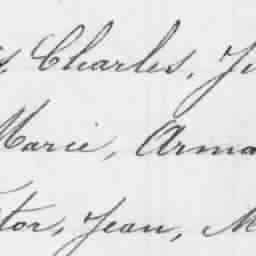 Charles,
Marie, Arma
tor, Jean, M